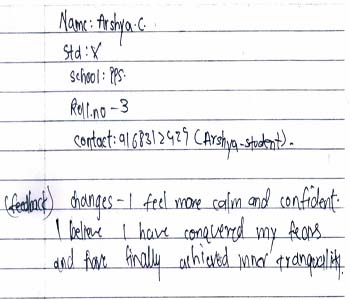 Name: Arshya.C.
Std: X
School: PPS.
Roll.no - 3
contact: 9168312429 (Arshya-student).
(feedback) changes - I feel more calm and confident.
I believe I have conquered my fears
and have finally achieved inner tranquality.